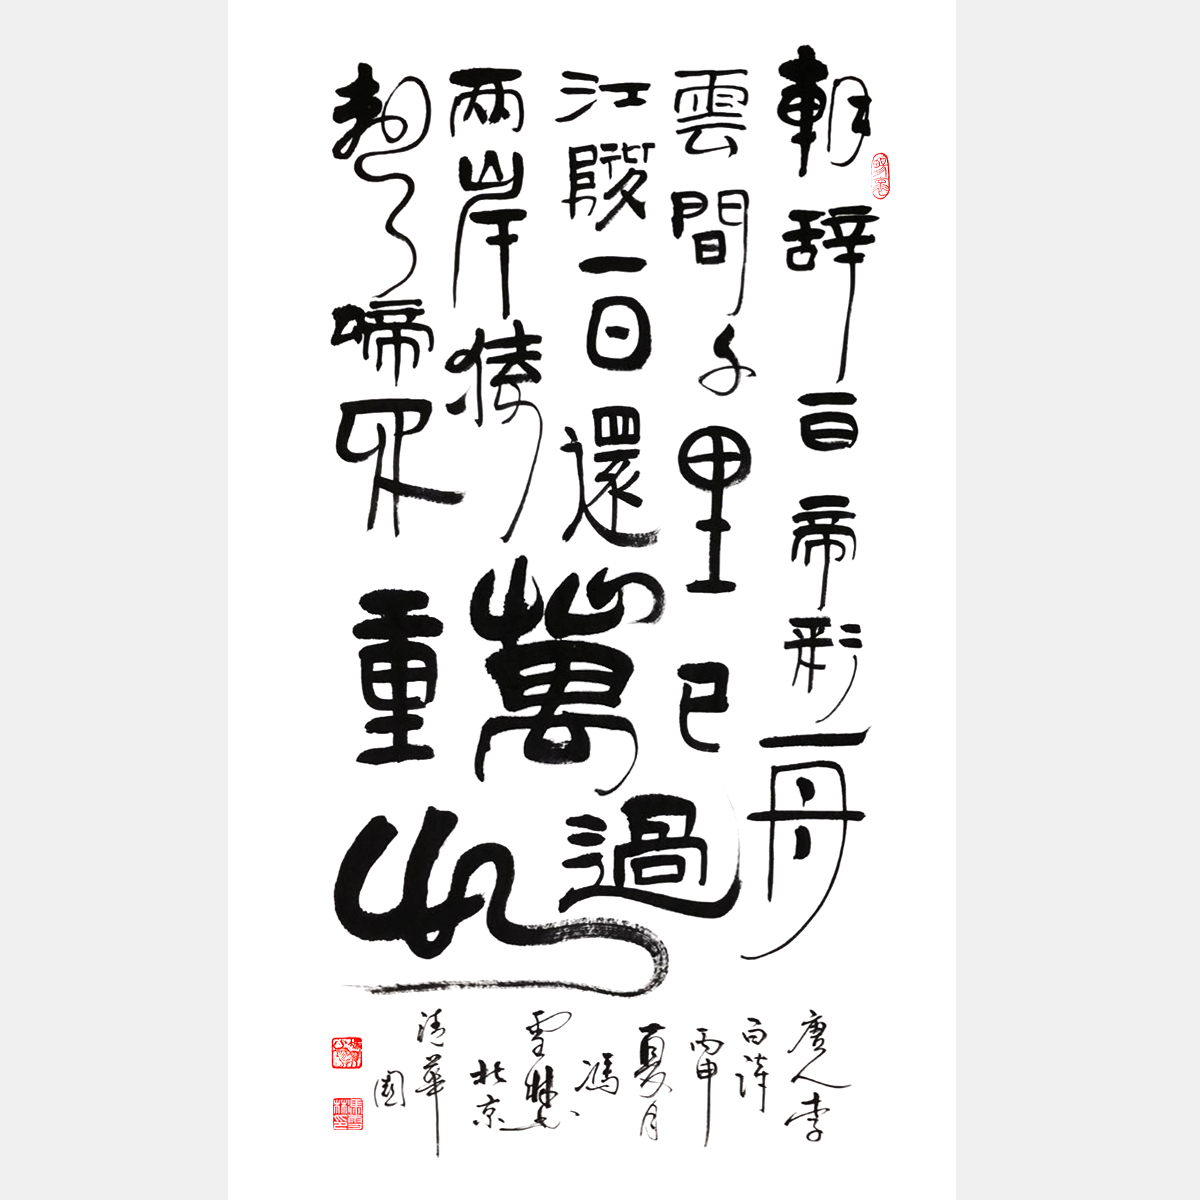 朝辞白帝彩
雲間千里
江陵一日還
兩岸猿
聲啼不
舟
已過
萬
重山
唐人李
白詩
丙申
夏月
馮
雪林書
北京
清華
園